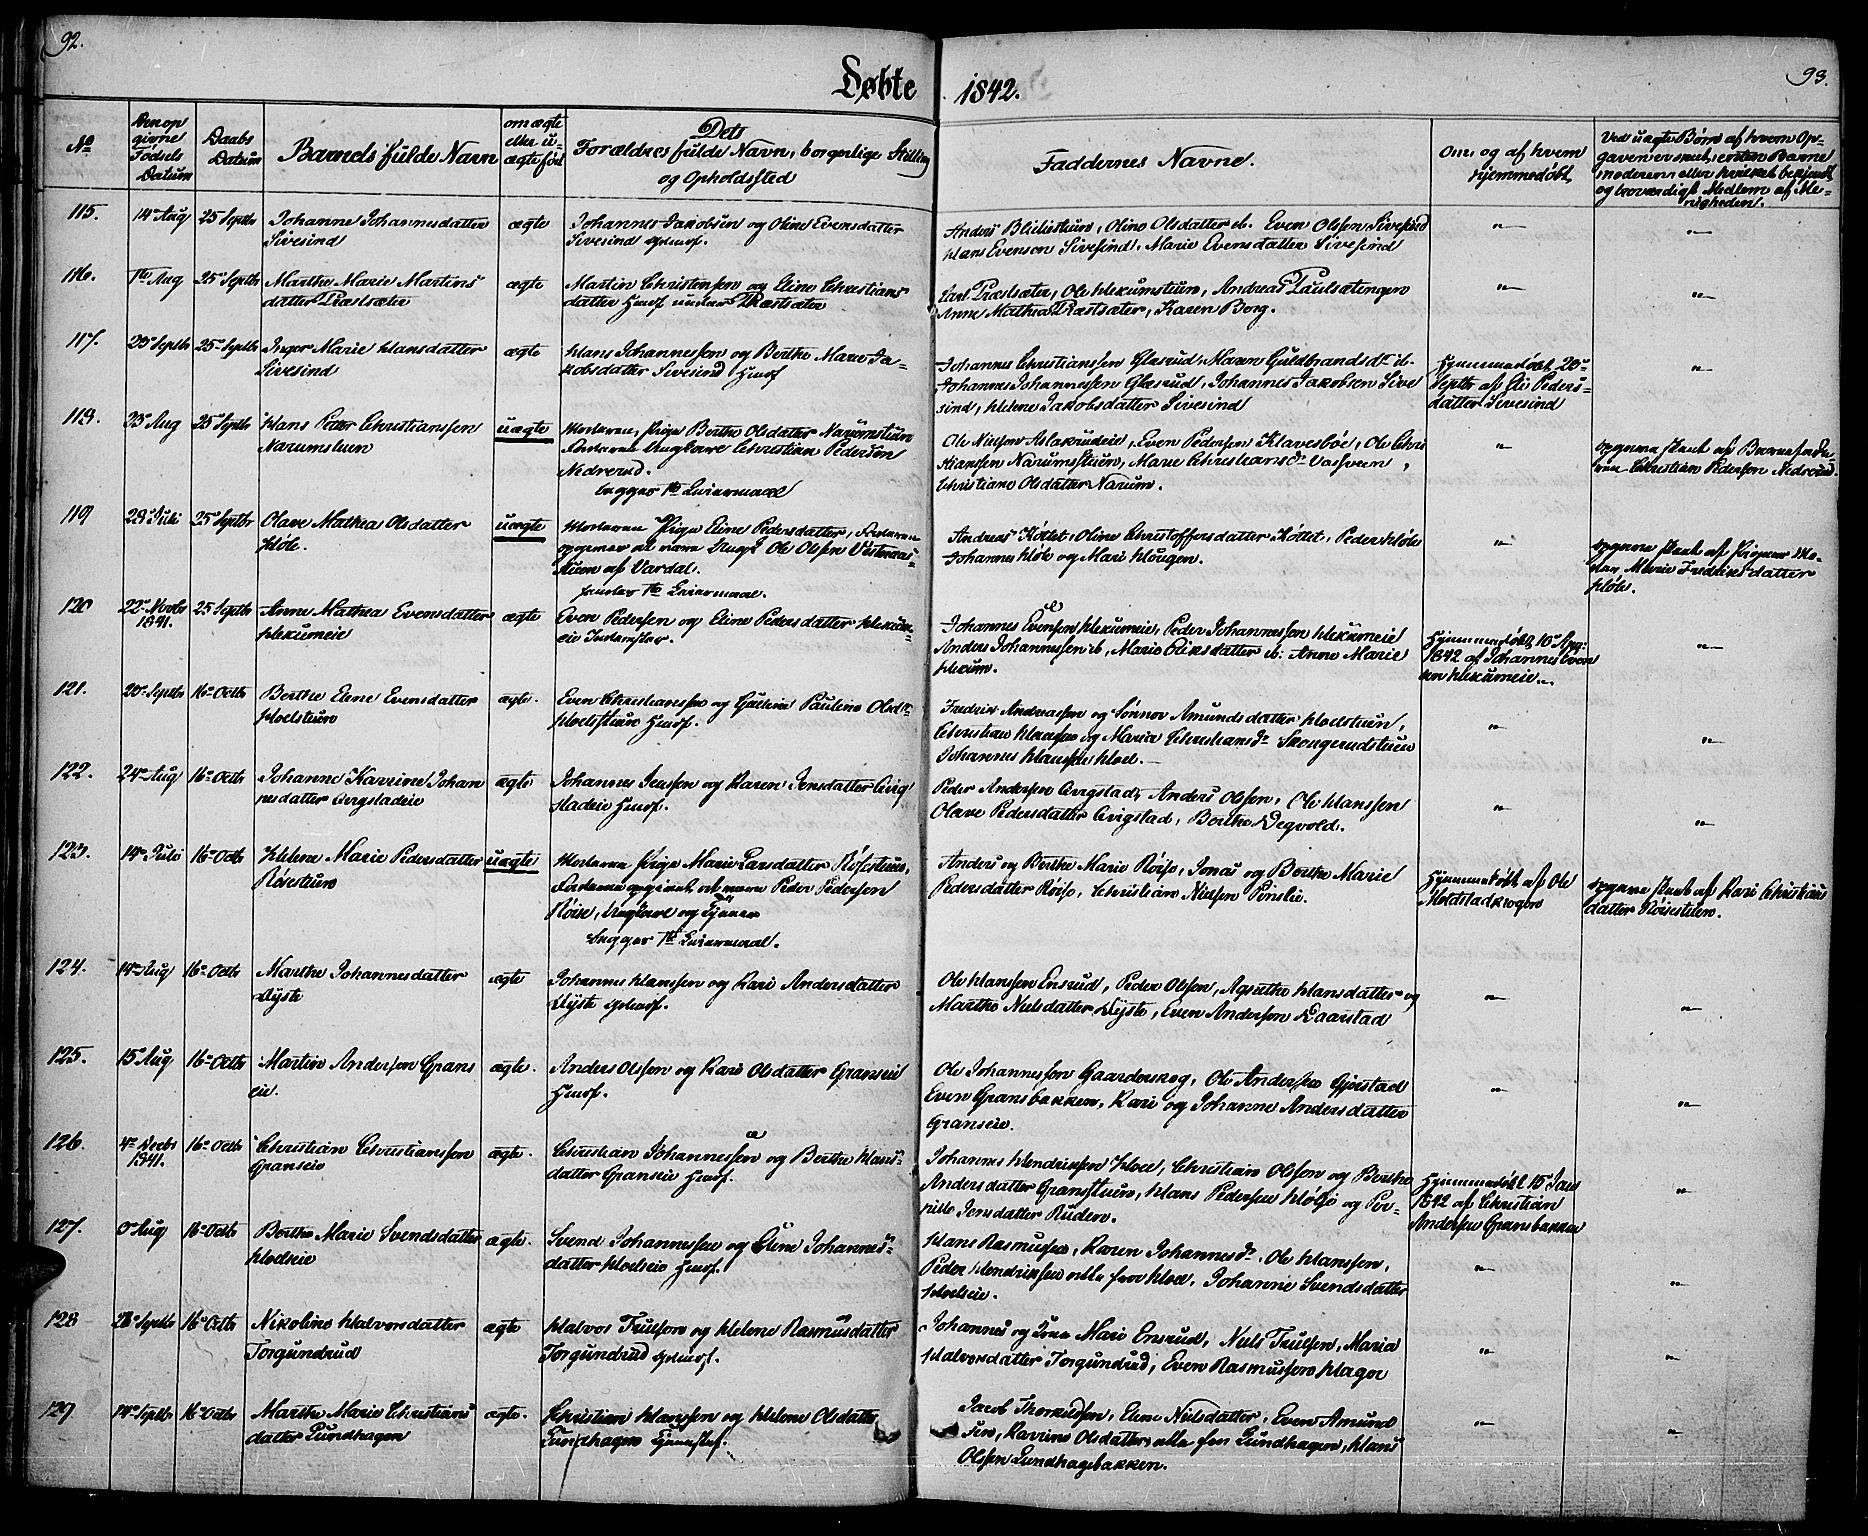 92.
93.
Døbte 1842.
No
Den op
givne
Fødsels
Datum
Daabs
Datum
Barnets fulde Navn
om ægte
eller u-
ægte fød
Dets
Forældres fulde Navn, borgerlige Stilling
og Opholdssted
Faddernes Navne.
Om, og af hvem
hjemmedøbt
Ved uægte Børn af hvem Op-
gaven er skeet, enten Barne
moderen eller hvilket bekjendt
og troværdigt Medlem af Me-
nigheden.
115.
14de Aug
25 Septbr
Johanne Johannesdatter
Sivesind
ægte
Johannes Jakobsen og Oline Evensdatter
Sivesind
Anders Blilistuen, Oline Olsdatter ib. Even Olssen Sivesind
Hans Evensen Sivesind, Marie Evensdatter Sivesind
"
"
116.
1ste Aug
25de Septbr
Marthe Marie Martins
datter Præstsæter
ægte
Martin Christensen og Eline Christians
datter Huusf. under Præstsæter
Carl Præstsæter, Ole Hekumstuen, Andreas Paulsætengen
Anne Mathea Præstsæter, Karen Borg.
"
"
117.
20de Septbr
25de Septbr
Inger Marie Hansdatter
Sivesind
ægte
Hans Johannessen og Berthe Marie Ja-
kobsdatter Sivesind Huusf
Johannes Christianssen Glæsrud, Maren Guldbrandsdr ib.
Johannes Johannessen Glæsrud, Johannes Jakobsen Sive
sind, Helene Jakobsdatter Sivesind
Hjemmedøbt 20de
Septbr af Eli Peders-
datter Sivesind
"
118.
23de Aug
25 Septbr
Hans Petter Christianssen
Narumstuen
uægte
Moderen, Pige Berthe Olsdatter Narumstuen
Faderen Ungkarl Christian Pedersen
Nedrerud.
begges 1ste Leiermaal
Ole Nielsen Aslakrudeie, Even Pedersen Klavesbøe, Ole Chris
tianssen Narumsstuen, Marie Christiansdr Vasveen,
Christiane Olsdatter Narum.
"
opgaven skeet af Barnefade-
ren Christian Pedersen Nedrerud.
119
28de Juli
25de Septbr
Olave Mathea Olsdatter
Høle.
uægte
Moderen Pige Eline Pedersdatter, Faderen
opgives at være Ungk Ole Olssen
stuen af Vardal.
1ste Leiermaal.
Andreas Køttet, Oline Christoffersdatter Køttet, Peder Høle
Johannes Høle og Mari Hougen.
"
opgaven skeet af Pigens Mo-
der Marie Fredriksdatter
Høle.
120
22de Novbr
1841.
25 Septbr
Anne Mathea Evensdatter
Hekumeie
ægte
Even Pedersen og Eline Pedersdatter Hekum-
eie Inderster.
Johannes Evensen Hekumeie, Peder Johannessen Hekumeie
Anders Johannessen ib, Marie Eriksdatter ib. Anne Marie
Hekum.
Hjemmedøbt 10de Apr:
1842 af Johannes Even
sen Hekumeie.
"
121.
20de Septbr
16de Octbr
Berthe Elene Evensdatter
Hoelstuen
ægte.
Even Christianssen og Gulline Pauline Olsdr
Hoelstuen Huusf.
Fredrik Andreassen og Sønnov Amundsdatter Hoelstuen,
Christian Hansen og Maria Christiansdr Skougerudstuen
Johannes Hanssen Hoel.
"
"
122.
24de Aug
16de Octbr
Johanne Karrine Johan
nesdatter Avigstadeie
ægte
Johannes Jenssen og Karen Jensdatter Avig
stadeie Huusf.
Peder Andersen Avigstad, Anders Olssen, Ole Hanssen
Olave Pedersdatter Avigstad, Berthe Degvold.
"
"
123.
14de Juli
16de Octbr
Helene Marie Pedersdatter
Røisestuen
uægte
Moderen Pige Marie Larsdatter Røisestuen,
Faderen opgivet at være Peder Pedersen
Røise, Ungkarl og Tjener
Begges 1ste Leiermaal.
Anders og Berthe Marie Røise, Jonas og Berthe Marie
Pedersdatter Røise, Christian Nielsen Pinslie.
Hjemmedøbt af Ole
Meldstadskogen
opgaven skeet af Kari Christians
datter Røisestuen.
124.
14de Aug
16de Octbr
Marthe Johannesdatter
Dyste
ægte
Johannes Hanssen og Kari Andersdatter
Dyste
Ole Hanssen Ensrud, Peder Olssen, Agnethe Hansdatter og
Marthe Nielsdatter Dyste, Even Andersen Daarstad
"
"
125.
15de Aug
16de Octbr
Martin Andersen Grans
eie.
ægte.
Anders Olssen og Kari Olsdatter Granseie
Huusf.
Ole Johannessen Gaarderskog, Ole Andersen Gjøstad
Even Gransbakken, Kari og Johanne Andersdatter
Granseie.
"
"
126.
4de Decbr
1841.
16de Octbr
Christian Christianssen
Granseie
ægte.
Christian Johannessen og Berthe Hans-
datter Granseie Huusf.
Johannes Hendriksen Hoel, Christian Olssen og Berthe
Andersdatter Granstuen, Hans Pedersen Høljo og Per-
nille Jensdatter Ruden.
Hjemmedøbt 15de Jan
1842 af Christian
Andersen Gransbakken
"
127.
Aug
16de Octbr
Berthe Marie Svendsdatter
Hoelseie
ægte.
Svend Johannessen og Eline Johannes-
datter Hoelseie Huusf.
Hans Rasmussen, Karen Johannesdr, Ole Hanssen,
Peder Hendriksen alle fra Hoel, Johanne Svendsdatter
Hoelseie.
"
"
128
26de Septbr
16de Octbr
Nikoline Halvorsdatter
Torgundrud
ægte
Halvor Trulsen og Helene Rasmusdatter
Torgundrud
Johannes og Mari Ensrud, Niels Trulsen, Maria
Halvorsdatter Torgundrud, Even Rasmussen Hagen
"
"
129
14de Septbr
16de Octbr
Marthe Marie Christians
datter Lundhagen
ægte.
Christian Hanssen og Helene Olsdatter
Lundhagen
Jacob Thorkildsen, Elen Nielsdatter, Even Amund
sen, Karine Olsdatter, alle fra Lundhagen, Hans
Olssen Lundhagebakken.
"
"